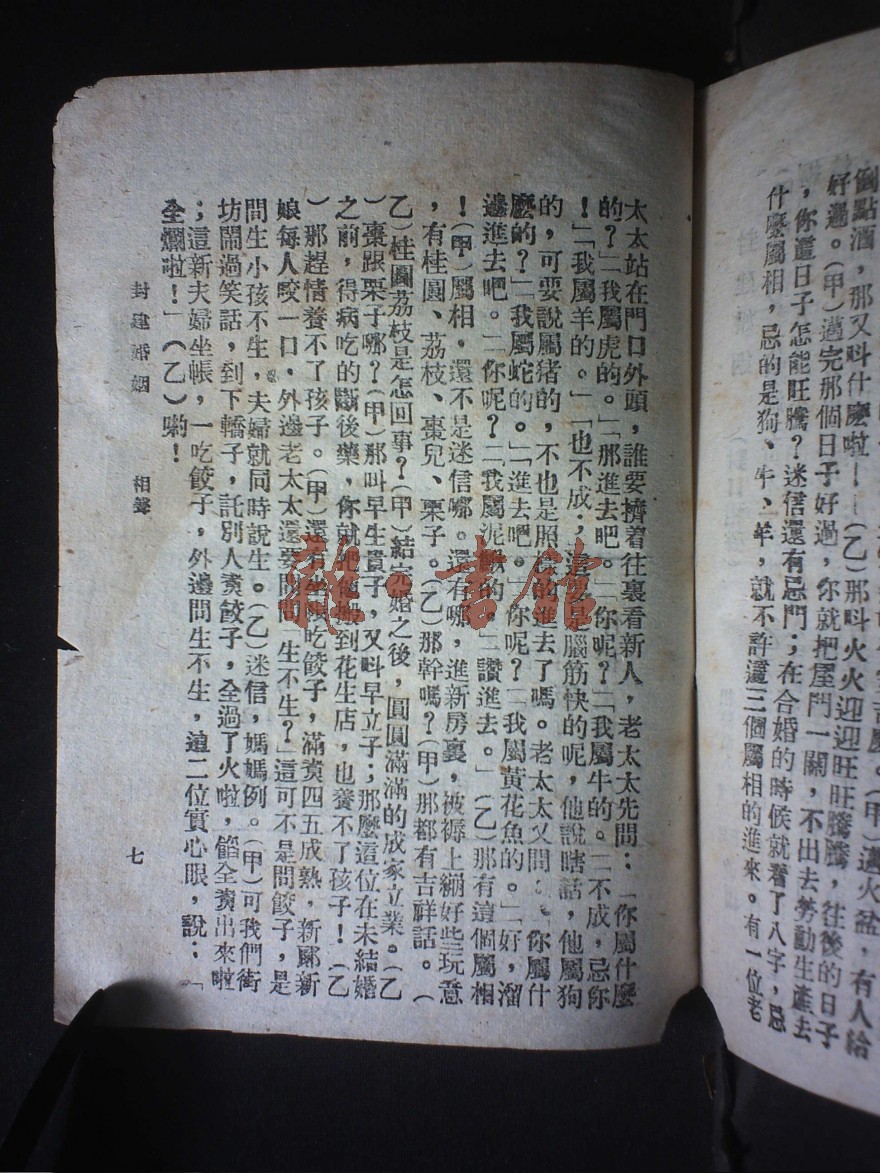 倒點酒，那又叫什麼啦！（乙）那叫火火迎迎旺旺騰騰，往後的日子
好過。（甲）邁完那個日子好過，你就把屋門一關，不出去勞動生產去
，你這日子怎能旺騰？迷信還有忌門；在合婚的時候就看了八字，忌
什麼屬相，忌的是狗、牛、羊，就不許這三個屬相的進來。有一位老
太太站在門口外頭，誰要擠着往裏看新人，老太太先問：「你屬什麼
的？」「我屬虎的。」「那進去吧。」「你呢？」「我屬牛的。」「不成，忌你
！」「我屬羊的。」「也不成；這要是腦筋快的呢，他說瞎話，他屬狗
的，可要說屬猪的，不也是照樣的進去了嗎。老太太又問：「你屬什
麼的？」「我屬蛇的。」「進去吧。」「你呢？」「我屬黃花魚的。」「好，溜
邊進去吧。」「你呢？」「我屬泥鰍的。」「鑽進去。」（乙）那有這個屬相
！（甲）屬相，還不是迷信哪。還有哪，進新房裏，被褥上綳好些玩意
，有桂圓、荔枝、棗兒、栗子。（乙）那幹嗎？（甲）那都有吉祥話。（
乙）桂圓荔枝是怎回事？（甲）結完婚之後，圓圓滿滿的成家立業。（乙
）棗跟栗子哪？（甲）那叫早生貴子，又叫早立子；那麼這位在未結婚
之前，得病吃的斷後藥，你就把他搬到花生店，也養不了孩子！（乙
）那趕情養不了孩子。（甲）還有坐帳吃餃子，滿煑四五成熟，新郎新
娘每人咬一口，外邊老太太還要問問「生不生？」這可不是問餃子，是
問生小孩不生，夫婦就同時說生。（乙）迷信，媽媽例。（甲）可我們街
坊鬧過笑話，到下轎子，託別人煑餃子，全過了火啦，餡全煑出來啦
；這新夫婦坐帳，一吃餃子，外邊問生不生，這二位實心眼，說：「
全爛啦！」（乙）喲！
封建婚姻　相聲
七
雜·書館